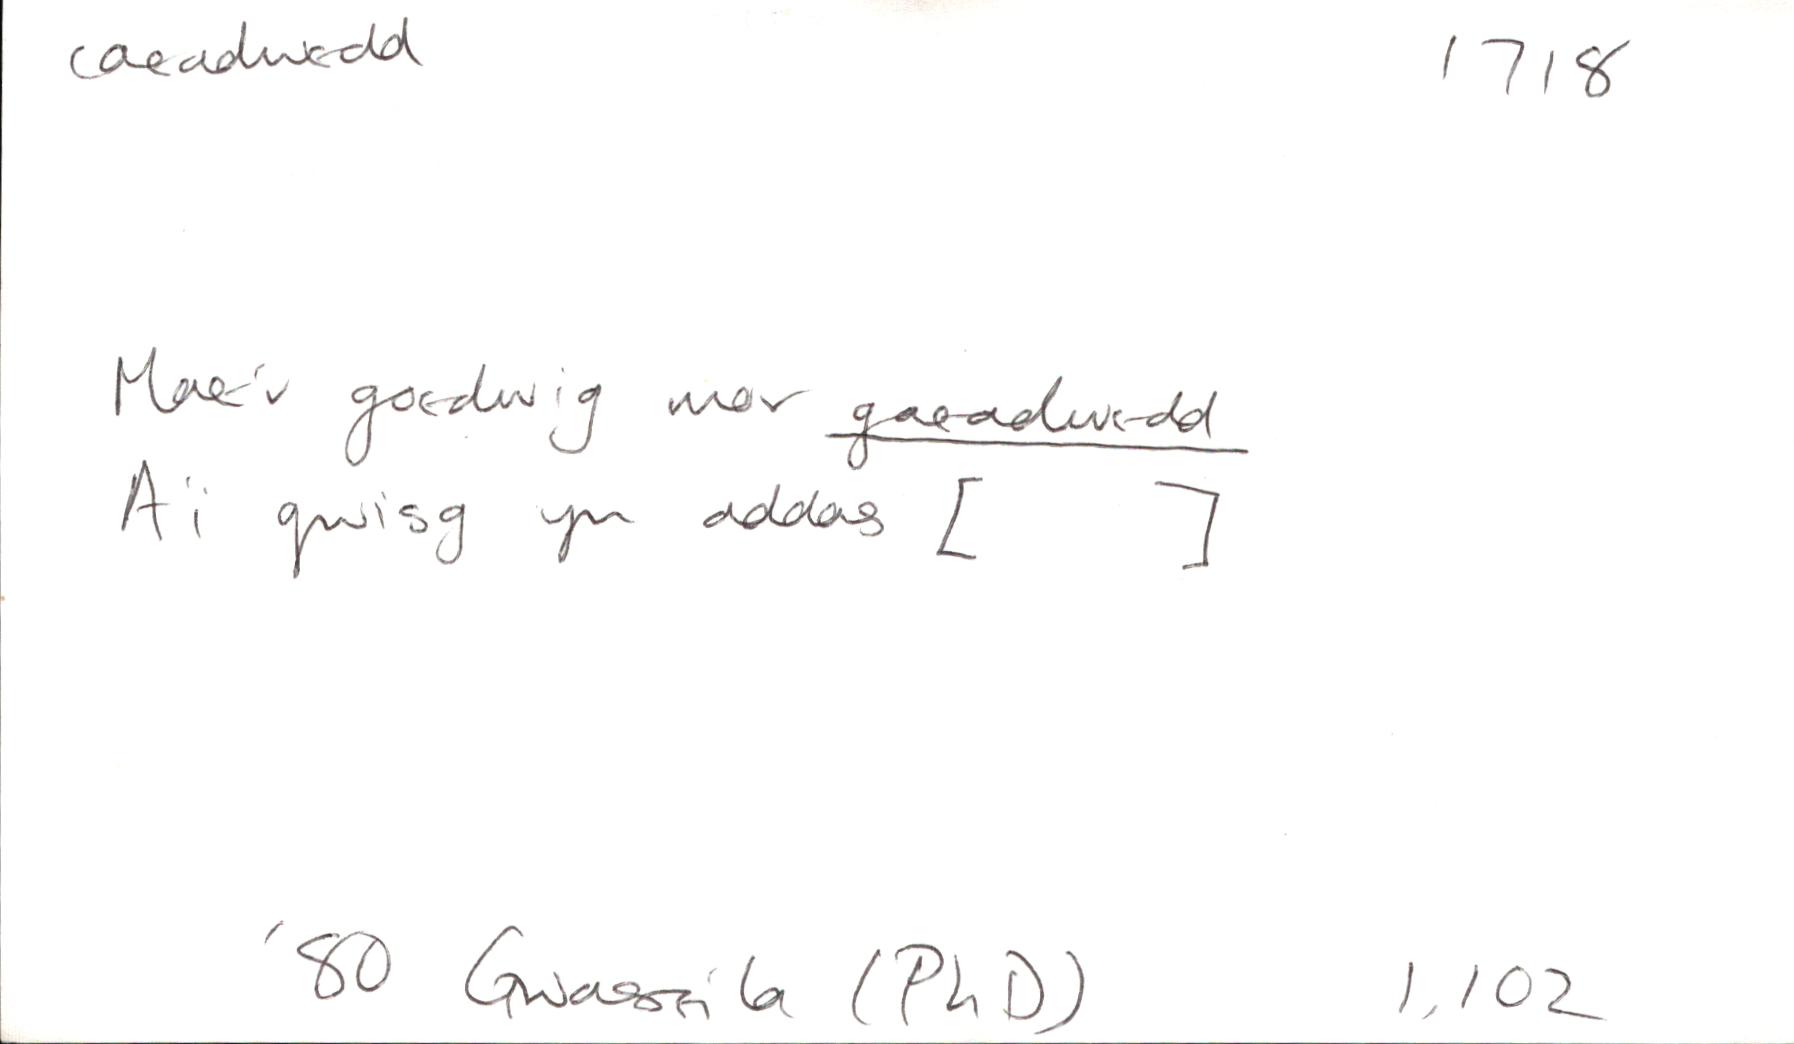 caeadwedd 1718
Mae'r goedwig mor gaeadwedd
A'i gwisg yn addas [ ]
'80 (PhD) 1,102